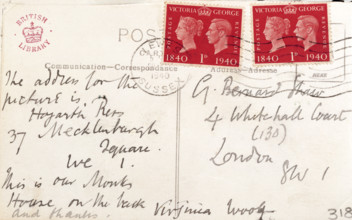 BRITISH
LIBRARY
POST
VICTORIA GEORGE
POSTAGE
REVENUE
1840 1D 1940
VICTORIA GEORGE
POSTAGE
1840 1D 1940
1940
SUSSEX
Communication—Correspondance
Address—Adresse
HERE
The address for the
picture is.
Hogarth Press
37 Mecklenburgh
Square.
WC 1.
This is our Monks
House on the back
and thanks.
Virginia Woolf
G. Bernard Shaw
4 Whitehall Court
(130)
London
SW 1
318